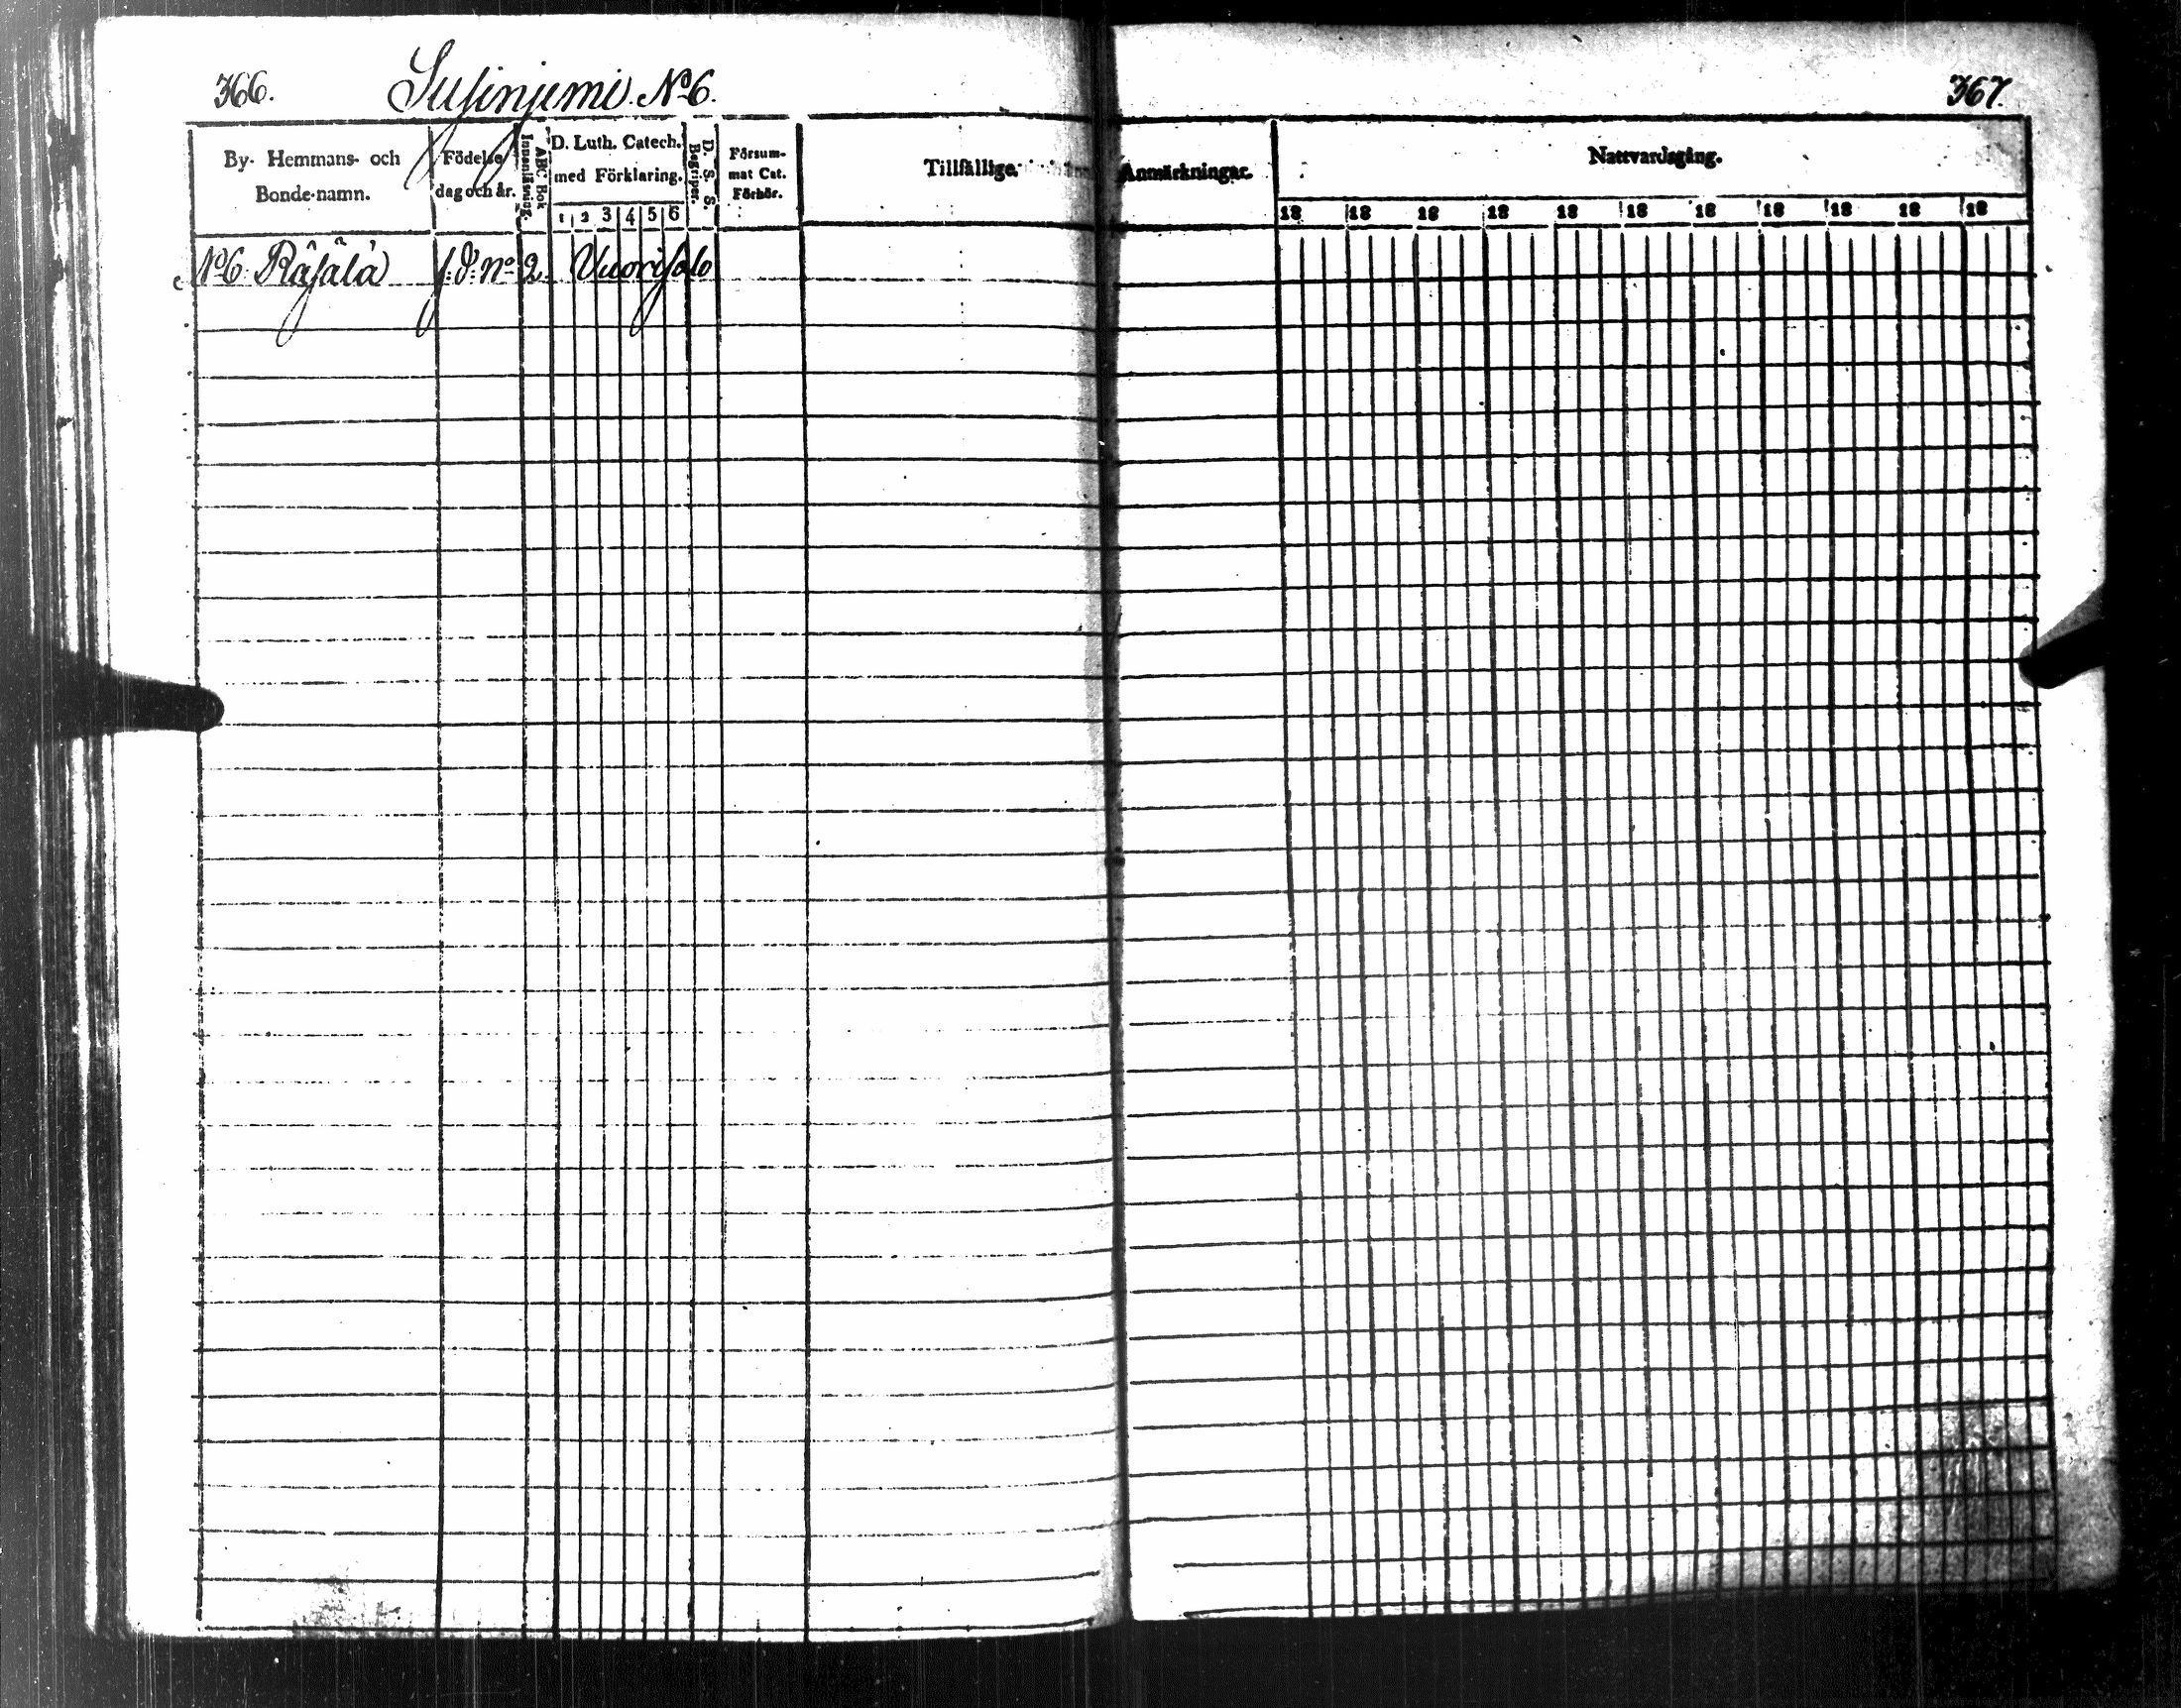 366.
Susinjemi. No 6.
By- Hemmans- och
Bonde-namn.
Födelse
dag och år.
Innanläsning.
ABC Bok
D. Luth. Catech.
med Förklaring.
1 2 3 4 5 6
D. S. S.
Begriper.
Försum-
mat Cat.
Förhör.
Tillfällige
No 6 Räfälä f. d. No 2 Vuorisalo
367.
Anmärkningar.
Nattvardsgång.
18 18 18 18 18 18 18 18 18 18 18